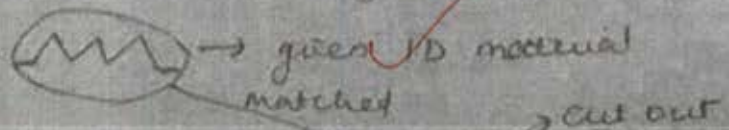 → given 1D material
matched
→ cut out